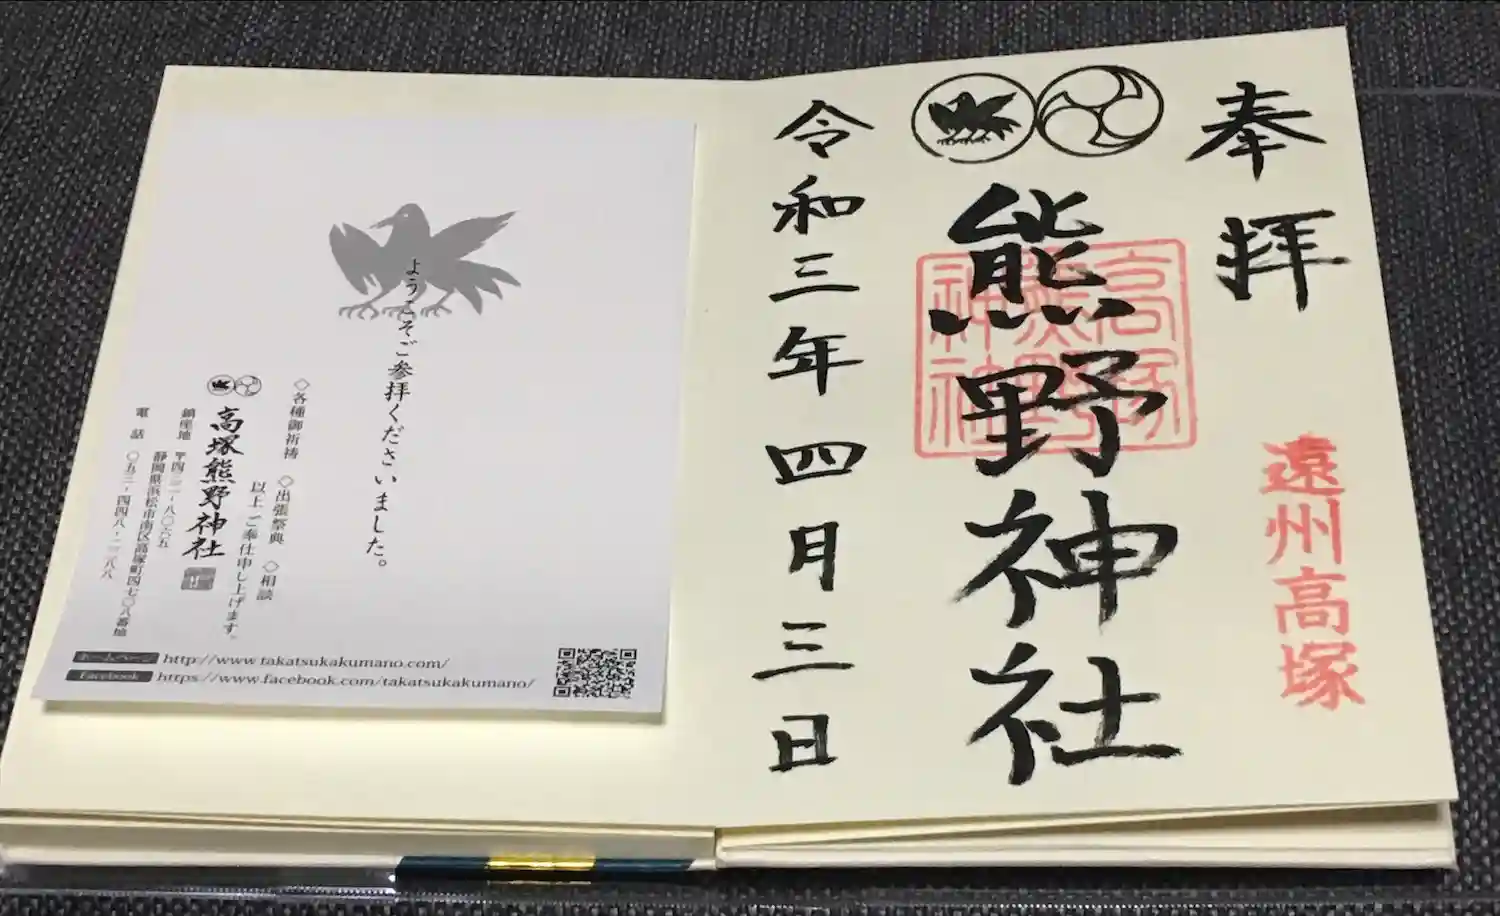 奉拝
遠州高塚
熊野神社
高塚
熊野
神社
令和三年四月三日
ようこそご参拝くださいました。
◇各種御祈祷 ◇出張祭典 ◇相談
以上ご奉仕申し上げます。
高塚熊野神社
鎮座地 〒四三二-八〇六五
静岡県浜松市南区高塚町四七〇八番地
電話
ホームページ http://www.takatsukakumano.com/
Facebook https://www.facebook.com/takatsukakumano/